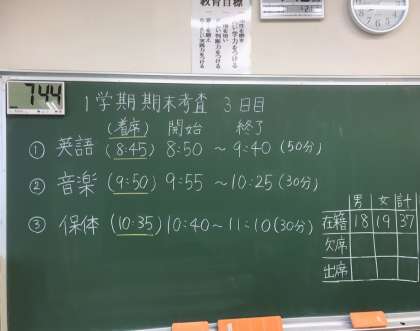 教育目標
744
1学期期末考査 3日目
(着席) 開始 終了
① 英語 (8:45) 8:50 ～ 9:40 (50分)
② 音楽 (9:50) 9:55 ～ 10:25 (30分)
③ 保体 (10:35) 10:40 ～ 11:10 (30分)
男 女 計
在籍 18 19 37
欠席
出席